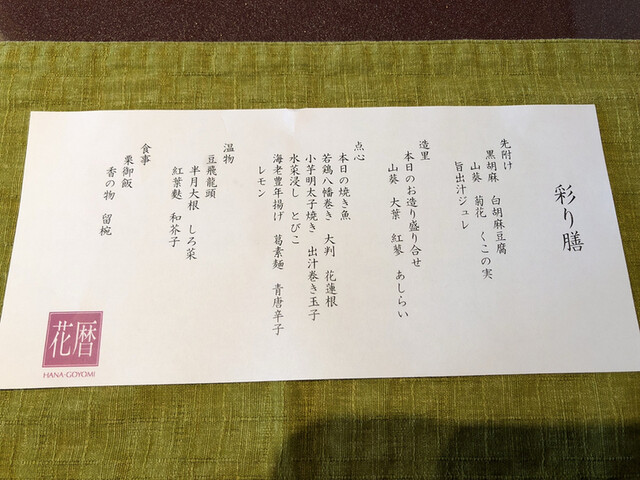 彩り膳
先附け
黒胡麻 白胡麻豆腐
山葵 菊花 くこの実
旨出汁ジュレ
造里
本日のお造り盛り合せ
山葵 大葉 紅蓼 あしらい
点心
本日の焼き魚
若鶏八幡巻き 大判 花蓮根
小芋明太子焼き 出汁巻き玉子
水菜浸し とびこ
海老豊年揚げ 葛素麺 青唐辛子
レモン
温物
豆飛龍頭
半月大根 しろ菜
紅葉麩 和芥子
食事
栗御飯
香の物 留椀
花暦
HANA-GOYOMI